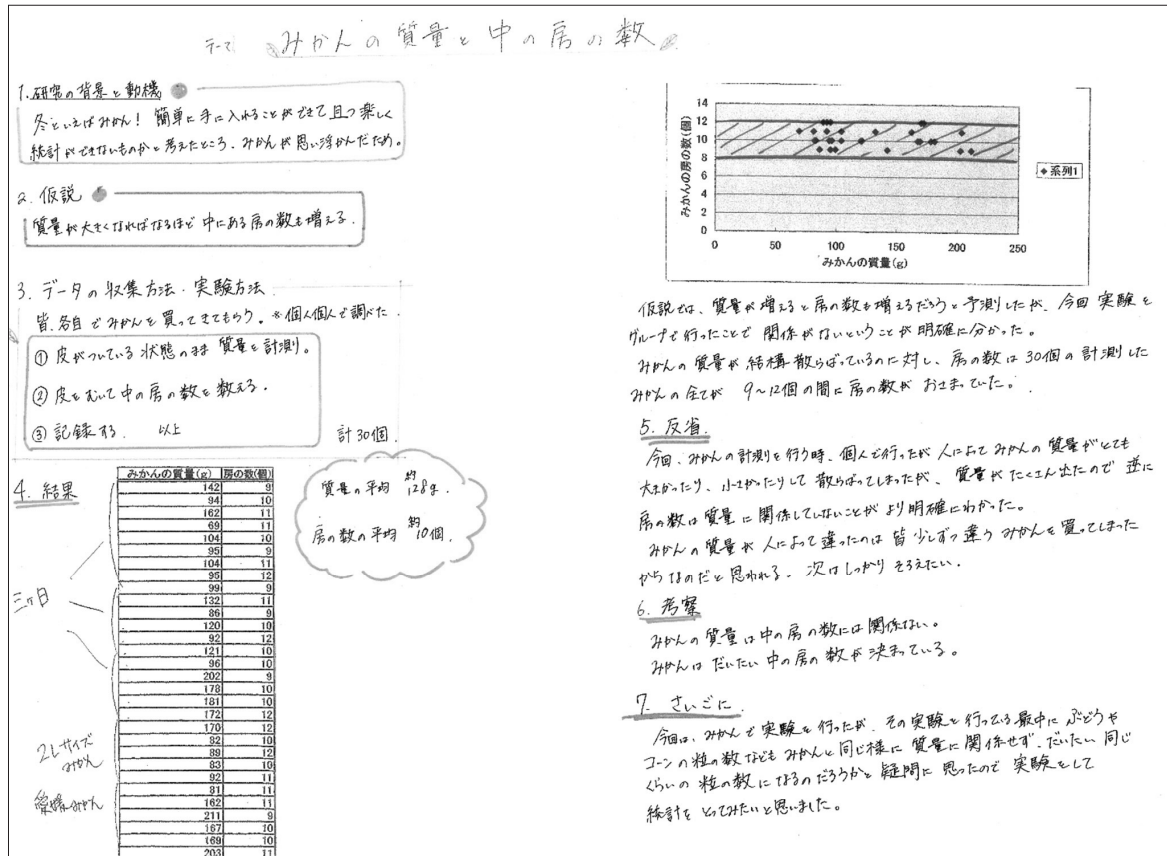 テーマ みかんの質量と中の房の数
1. 研究の背景と動機
冬といえばみかん！ 簡単に手に入れることができて且つ楽しく
統計ができないものかと考えたところ、みかんが思い浮かんだため。
2. 仮説
質量が大きくなればなるほど中にある房の数も増える。
3. データの収集方法・実験方法
皆、各自でみかんを買ってきてもらう。※個人個人で調べた
① 皮がついている状態のまま質量を計測。
② 皮をむいて中の房の数を数える。
③ 記録する。 以上
計30個.
4. 結果
みかんの質量(g) 房の数(個)
142 9
94 10
162 11
69 11
104 10
95 9
104 11
95 12
99 9
132 11
86 9
120 10
92 12
121 10
96 10
202 9
178 10
181 10
172 12
170 12
92 10
89 12
83 10
92 11
81 11
162 11
211 9
167 10
169 10
203 11
三ヶ日
2Lサイズ
みかん
愛媛みかん
質量の平均 約128g.
房の数の平均 約10個.
みかんの房の数(個)
14
12
10
8
6
4
2
0
0 50 100 150 200 250
みかんの質量(g)
系列1
仮説では、質量が増えると房の数も増えるだろうと予測したが、今回実験を
グループで行ったことで関係がないということが明確に分かった。
みかんの質量が結構散らばっているのに対し、房の数は30個の計測した
みかんの全てが 9〜12個の間に房の数がおさまっていた。
5. 反省.
今回、みかんの計測を行う時、個人で行ったが人によってみかんの質量がとても
大きかったり、小さかったりして散らばってしまったが、質量がたくさん出たので逆に
房の数は質量に関係していないことがより明確にわかった。
みかんの質量が人によって違ったのは皆少しずつ違うみかんを買ってしまった
からなのだと思われる。次はしっかりそろえたい。
6. 考察
みかんの質量は中の房の数には関係ない。
みかんはだいたい中の房の数が決まっている。
7. さいごに.
今回は、みかんで実験を行ったが、その実験を行っている最中にぶどうや
コーンの粒の数などもみかんと同じ様に質量に関係せず、だいたい同じ
くらいの粒の数になるのだろうかと疑問に思ったので実験をして
統計をとってみたいと思いました。